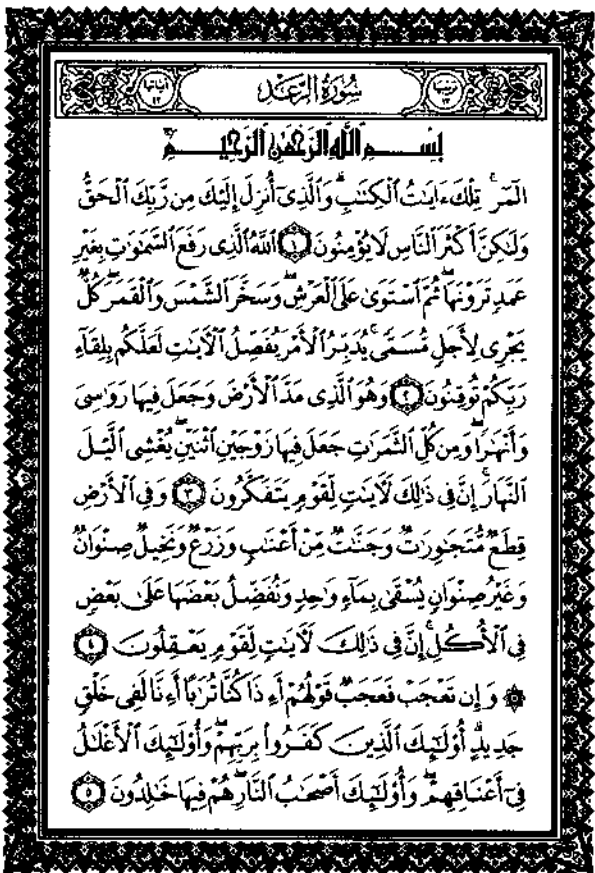 سُورَةُ الرَّعْدِ
بِسْمِ ٱللَّهِ ٱلرَّحْمَٰنِ ٱلرَّحِيمِ
الٓمٓر ۚ تِلْكَ ءَايَٰتُ ٱلْكِتَٰبِ ۗ وَٱلَّذِىٓ أُنزِلَ إِلَيْكَ مِن رَّبِّكَ ٱلْحَقُّ
وَلَٰكِنَّ أَكْثَرَ ٱلنَّاسِ لَا يُؤْمِنُونَ ١ ٱللَّهُ ٱلَّذِى رَفَعَ ٱلسَّمَٰوَٰتِ بِغَيْرِ
عَمَدٍ تَرَوْنَهَا ۖ ثُمَّ ٱسْتَوَىٰ عَلَى ٱلْعَرْشِ ۖ وَسَخَّرَ ٱلشَّمْسَ وَٱلْقَمَرَ ۖ كُلٌّ
يَجْرِى لِأَجَلٍ مُّسَمًّى ۚ يُدَبِّرُ ٱلْأَمْرَ يُفَصِّلُ ٱلْءَايَٰتِ لَعَلَّكُم بِلِقَآءِ
رَبِّكُمْ تُوقِنُونَ ٢ وَهُوَ ٱلَّذِى مَدَّ ٱلْأَرْضَ وَجَعَلَ فِيهَا رَوَٰسِىَ
وَأَنْهَٰرًا ۖ وَمِن كُلِّ ٱلثَّمَرَٰتِ جَعَلَ فِيهَا زَوْجَيْنِ ٱثْنَيْنِ ۖ يُغْشِى ٱلَّيْلَ
ٱلنَّهَارَ ۚ إِنَّ فِى ذَٰلِكَ لَءَايَٰتٍ لِّقَوْمٍ يَتَفَكَّرُونَ ٣ وَفِى ٱلْأَرْضِ
قِطَعٌ مُّتَجَٰوِرَٰتٌ وَجَنَّٰتٌ مِّنْ أَعْنَٰبٍ وَزَرْعٌ وَنَخِيلٌ صِنْوَانٌ
وَغَيْرُ صِنْوَانٍ يُسْقَىٰ بِمَآءٍ وَٰحِدٍ وَنُفَضِّلُ بَعْضَهَا عَلَىٰ بَعْضٍ
فِى ٱلْأُكُلِ ۚ إِنَّ فِى ذَٰلِكَ لَءَايَٰتٍ لِّقَوْمٍ يَعْقِلُونَ ٤
۞ وَإِن تَعْجَبْ فَعَجَبٌ قَوْلُهُمْ أَءِذَا كُنَّا تُرَٰبًا أَءِنَّا لَفِى خَلْقٍ
جَدِيدٍ ۗ أُو۟لَٰٓئِكَ ٱلَّذِينَ كَفَرُوا۟ بِرَبِّهِمْ ۖ وَأُو۟لَٰٓئِكَ ٱلْأَغْلَٰلُ
فِىٓ أَعْنَاقِهِمْ ۖ وَأُو۟لَٰٓئِكَ أَصْحَٰبُ ٱلنَّارِ ۖ هُمْ فِيهَا خَٰلِدُونَ ٥